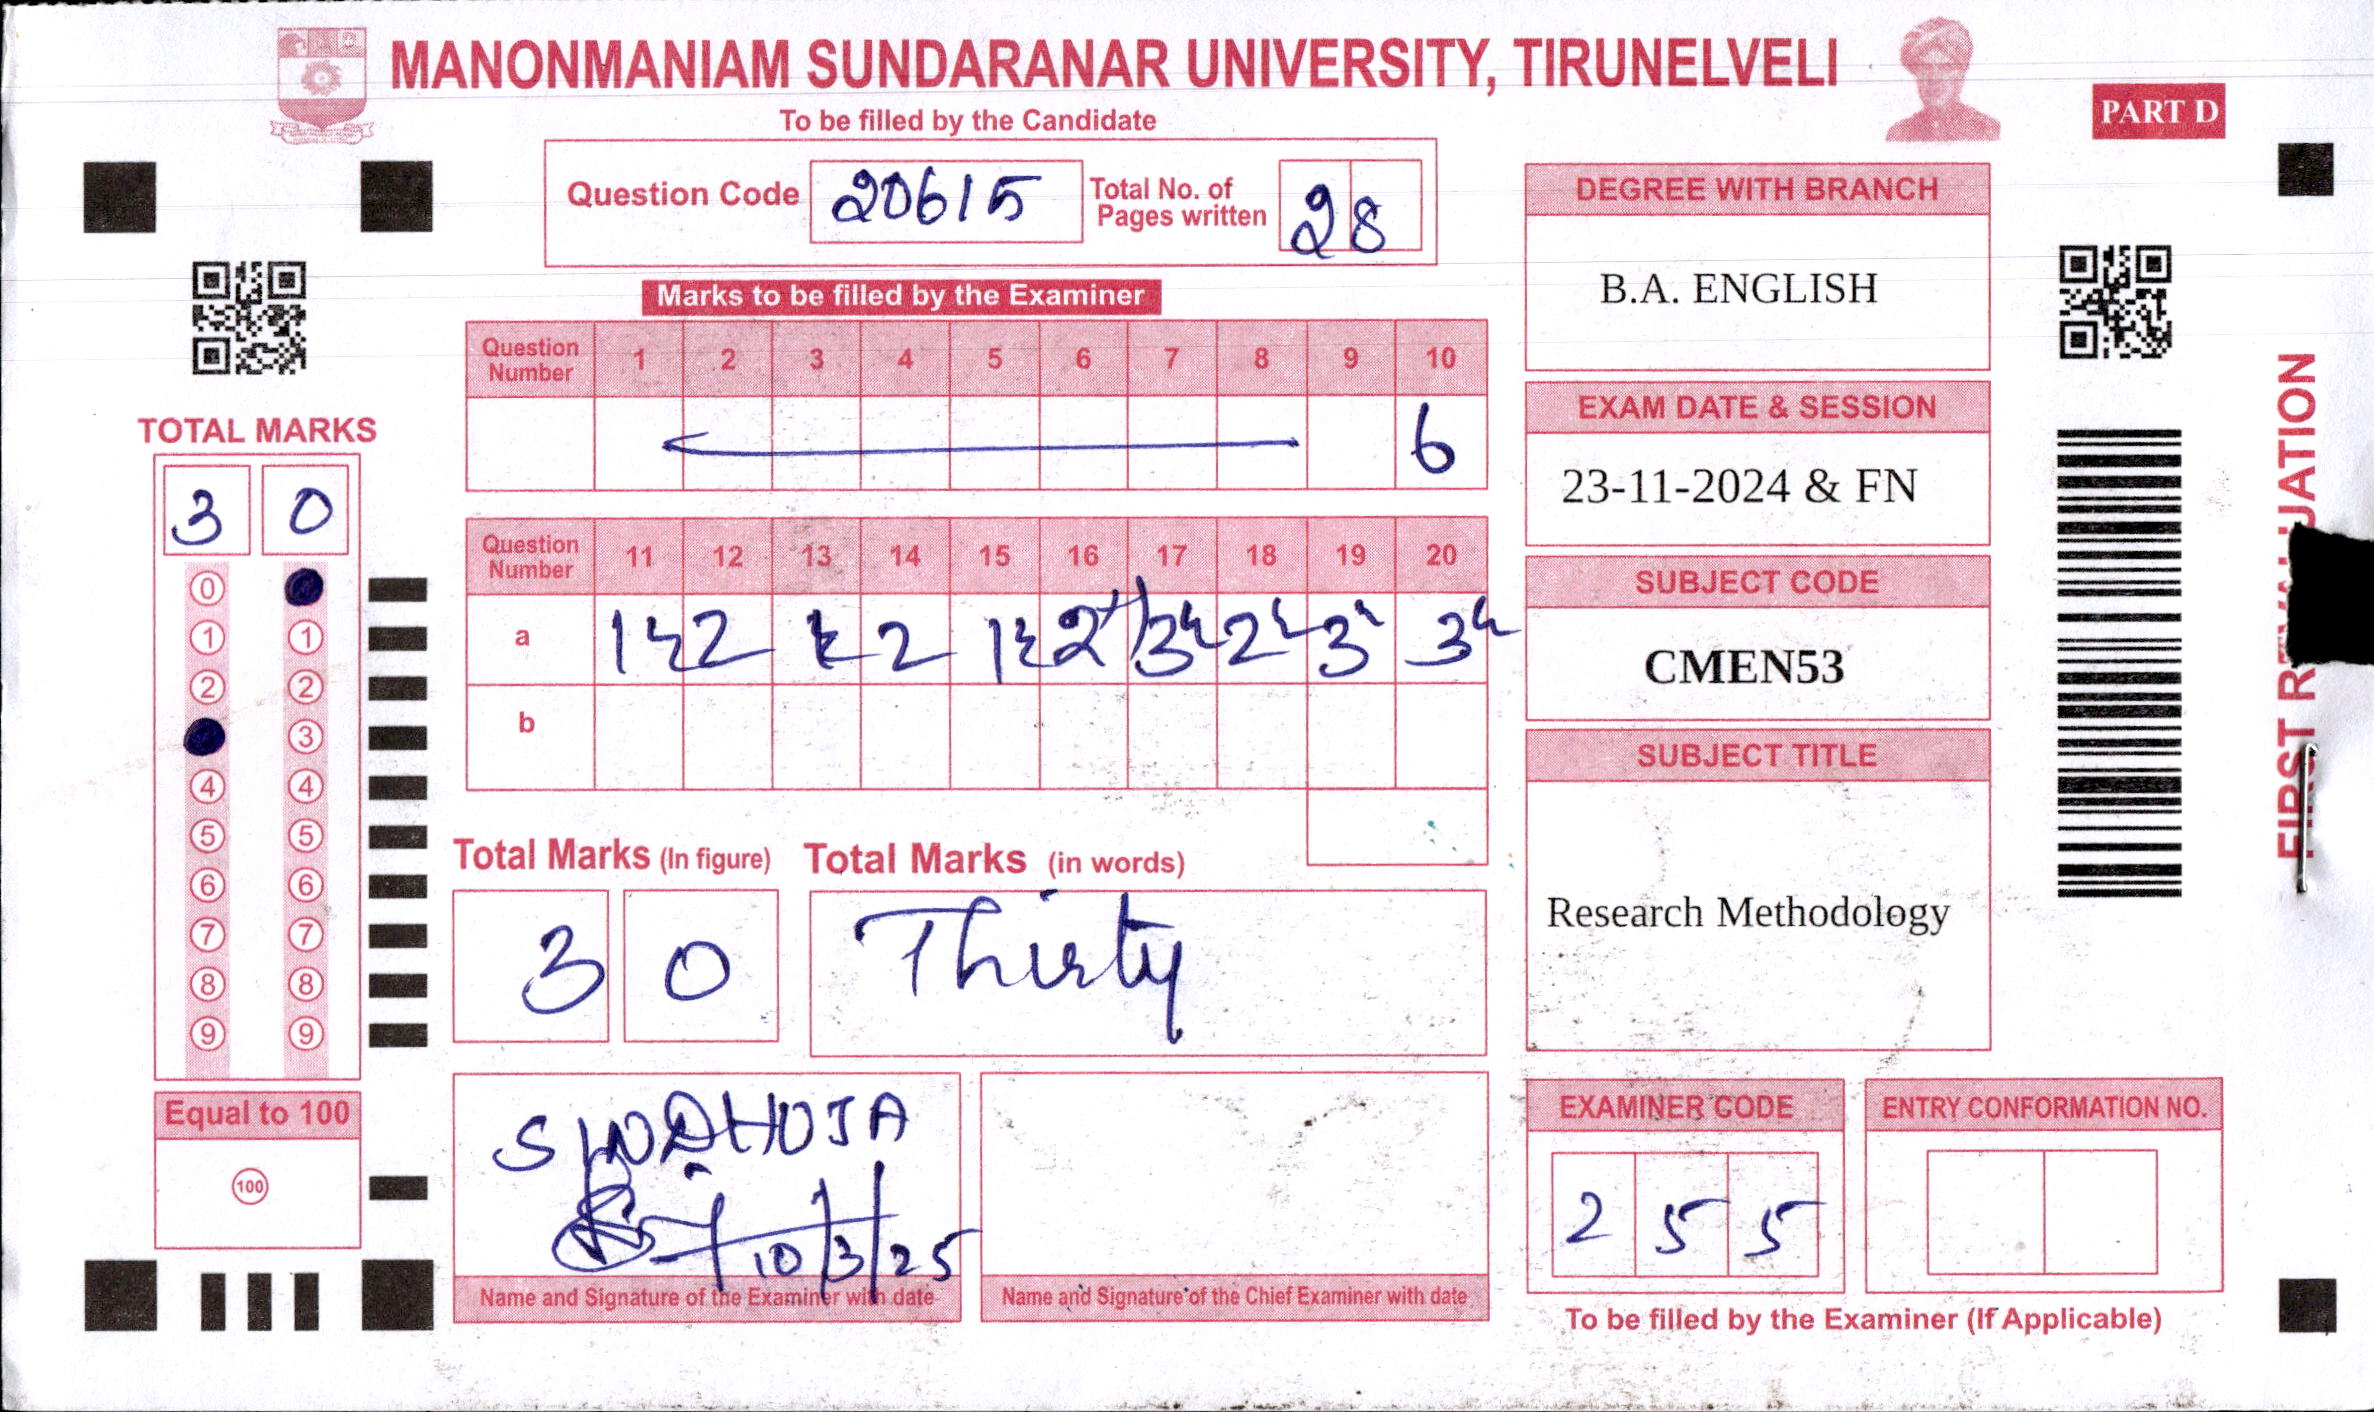 MANONMANIAM SUNDARANAR UNIVERSITY, TIRUNELVELI
PART D
To be filled by the Candidate
Question Code 20615 Total No. of Pages written 28
Marks to be filled by the Examiner
Question Number 1 2 3 4 5 6 7 8 9 10
6
Question Number 11 12 13 14 15 16 17 18 19 20
a 2 2
b
TOTAL MARKS
3 0
0
1 1
2 2
3
4 4
5 5
6 6
7 7
8 8
9 9
Equal to 100
100
Total Marks (In figure) Total Marks (in words)
3 0 Thirty
SINDHUJA
10/3/25
Name and Signature of the Examiner with date
Name and Signature of the Chief Examiner with date
DEGREE WITH BRANCH
B.A. ENGLISH
EXAM DATE & SESSION
23-11-2024 & FN
SUBJECT CODE
CMEN53
SUBJECT TITLE
Research Methodology
EXAMINER CODE
2 5 5
ENTRY CONFORMATION NO.
To be filled by the Examiner (If Applicable)
FIRST